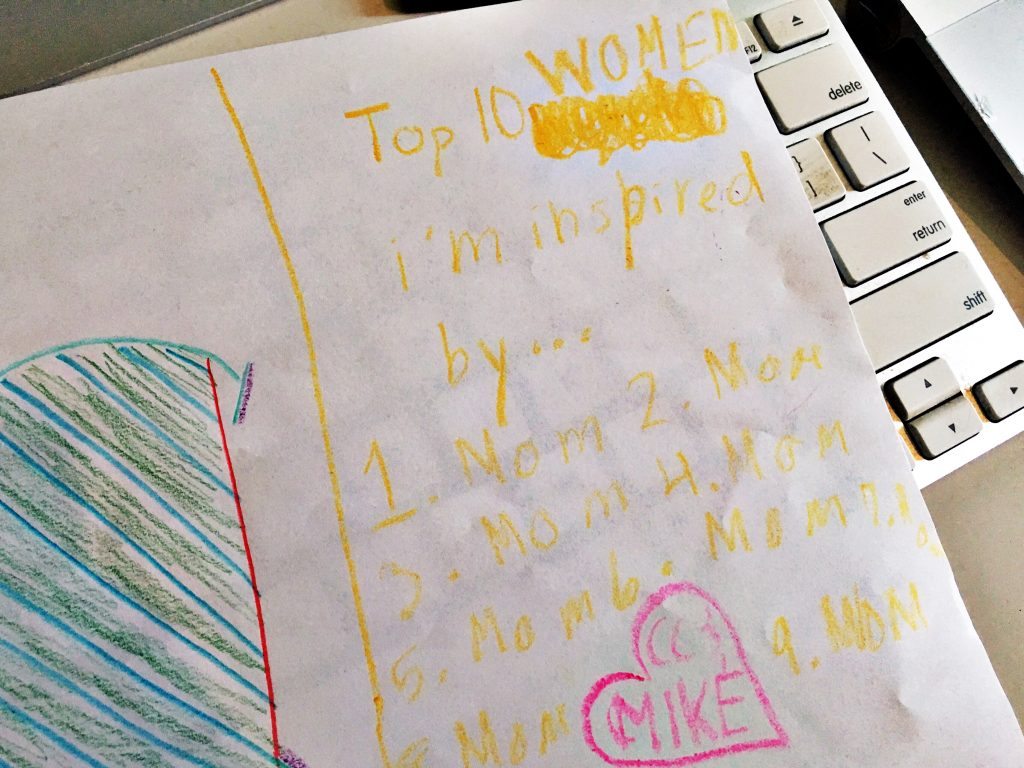 WOMEN
Top 10
i'm inspired
by...
1. Mom 2. Mom
3. Mom 4. Mom
5. Mom 6. Mom 7.
8. Mom 9. MOM
MIKE
F12
delete
}
]
|
\
enter
return
shift